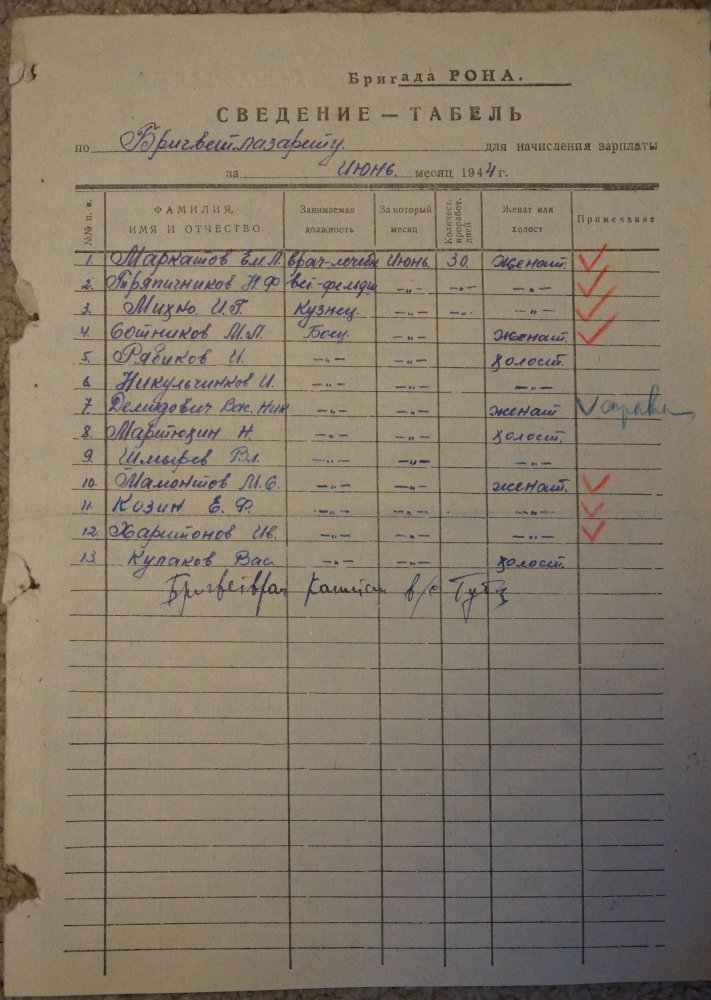 Бригада РОНА.
СВЕДЕНИЕ — ТАБЕЛЬ
по Бригветлазарету. для начисления зарплаты
за Июнь. месяц 1944 г.
№№ п. п. ФАМИЛИЯ, ИМЯ И ОТЧЕСТВО Занимаемая должность За который месяц Количест. проработ. дней Женат или холост Примечание
1. Ем. Л. врач- Июнь. 30. женат.
2. Тряпичников Н. Ф -„- -„- -„-
3. Михно. И. Г. Кузнец. -„- -„- -„-
4. Сотников М. Л. Боец. -„- женат.
5. Рябиков И. -„- -„- холост.
6. Никульчинков И. -„- -„- -„-
7. Демидович Вас. Ник -„- -„- женат
8. Мартюхин Н. -„- -„- холост.
9. Шмырев Вл. -„- -„- -„-
10. Мамонтов М. С. -„- -„- женат.
11. Козин Е. Ф. -„- -„- -„-
12. Харитонов Ив. -„- -„- -„-
13. Кулаков Вас. -„- -„- холост.
Бригветврач